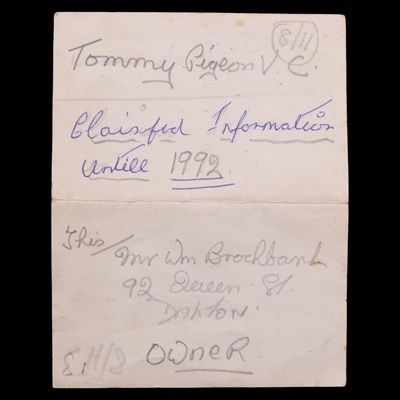 8/11
Tommy Pigeon V.C.
Claisified Information
Untill 1992
This/ Mr Wm Brockbank
92 Queen St.
OWNER
E. 11/8